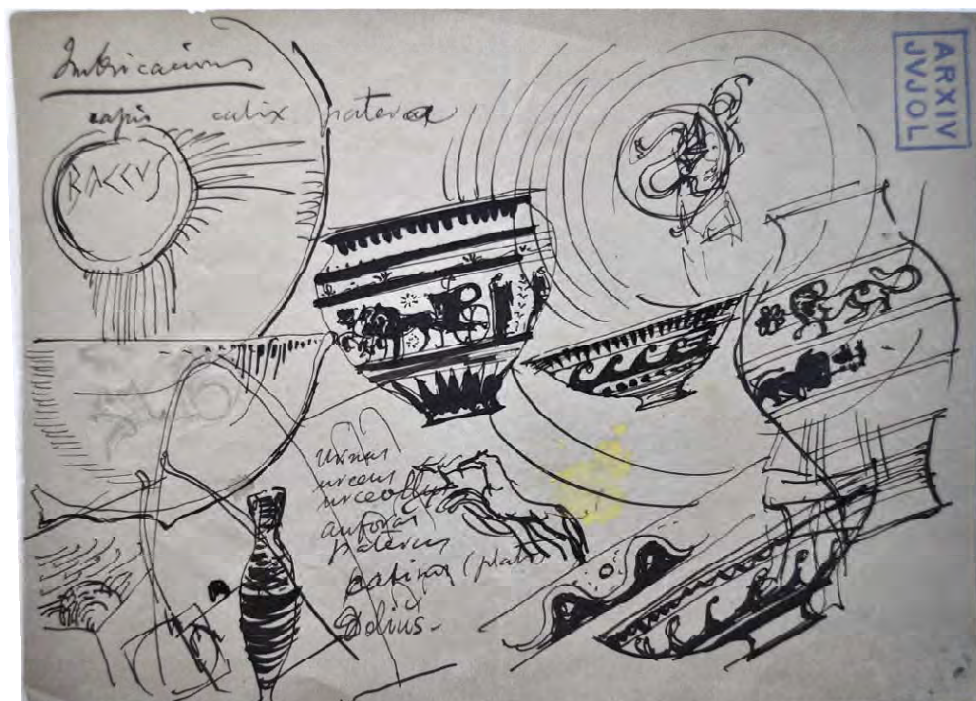 Imbricacions
capis calix paterae
BACCVS
ARXIV
JVJOL
urnas
urceus
urceollus
anforas
pateras
patinas (plato)
Dolius.